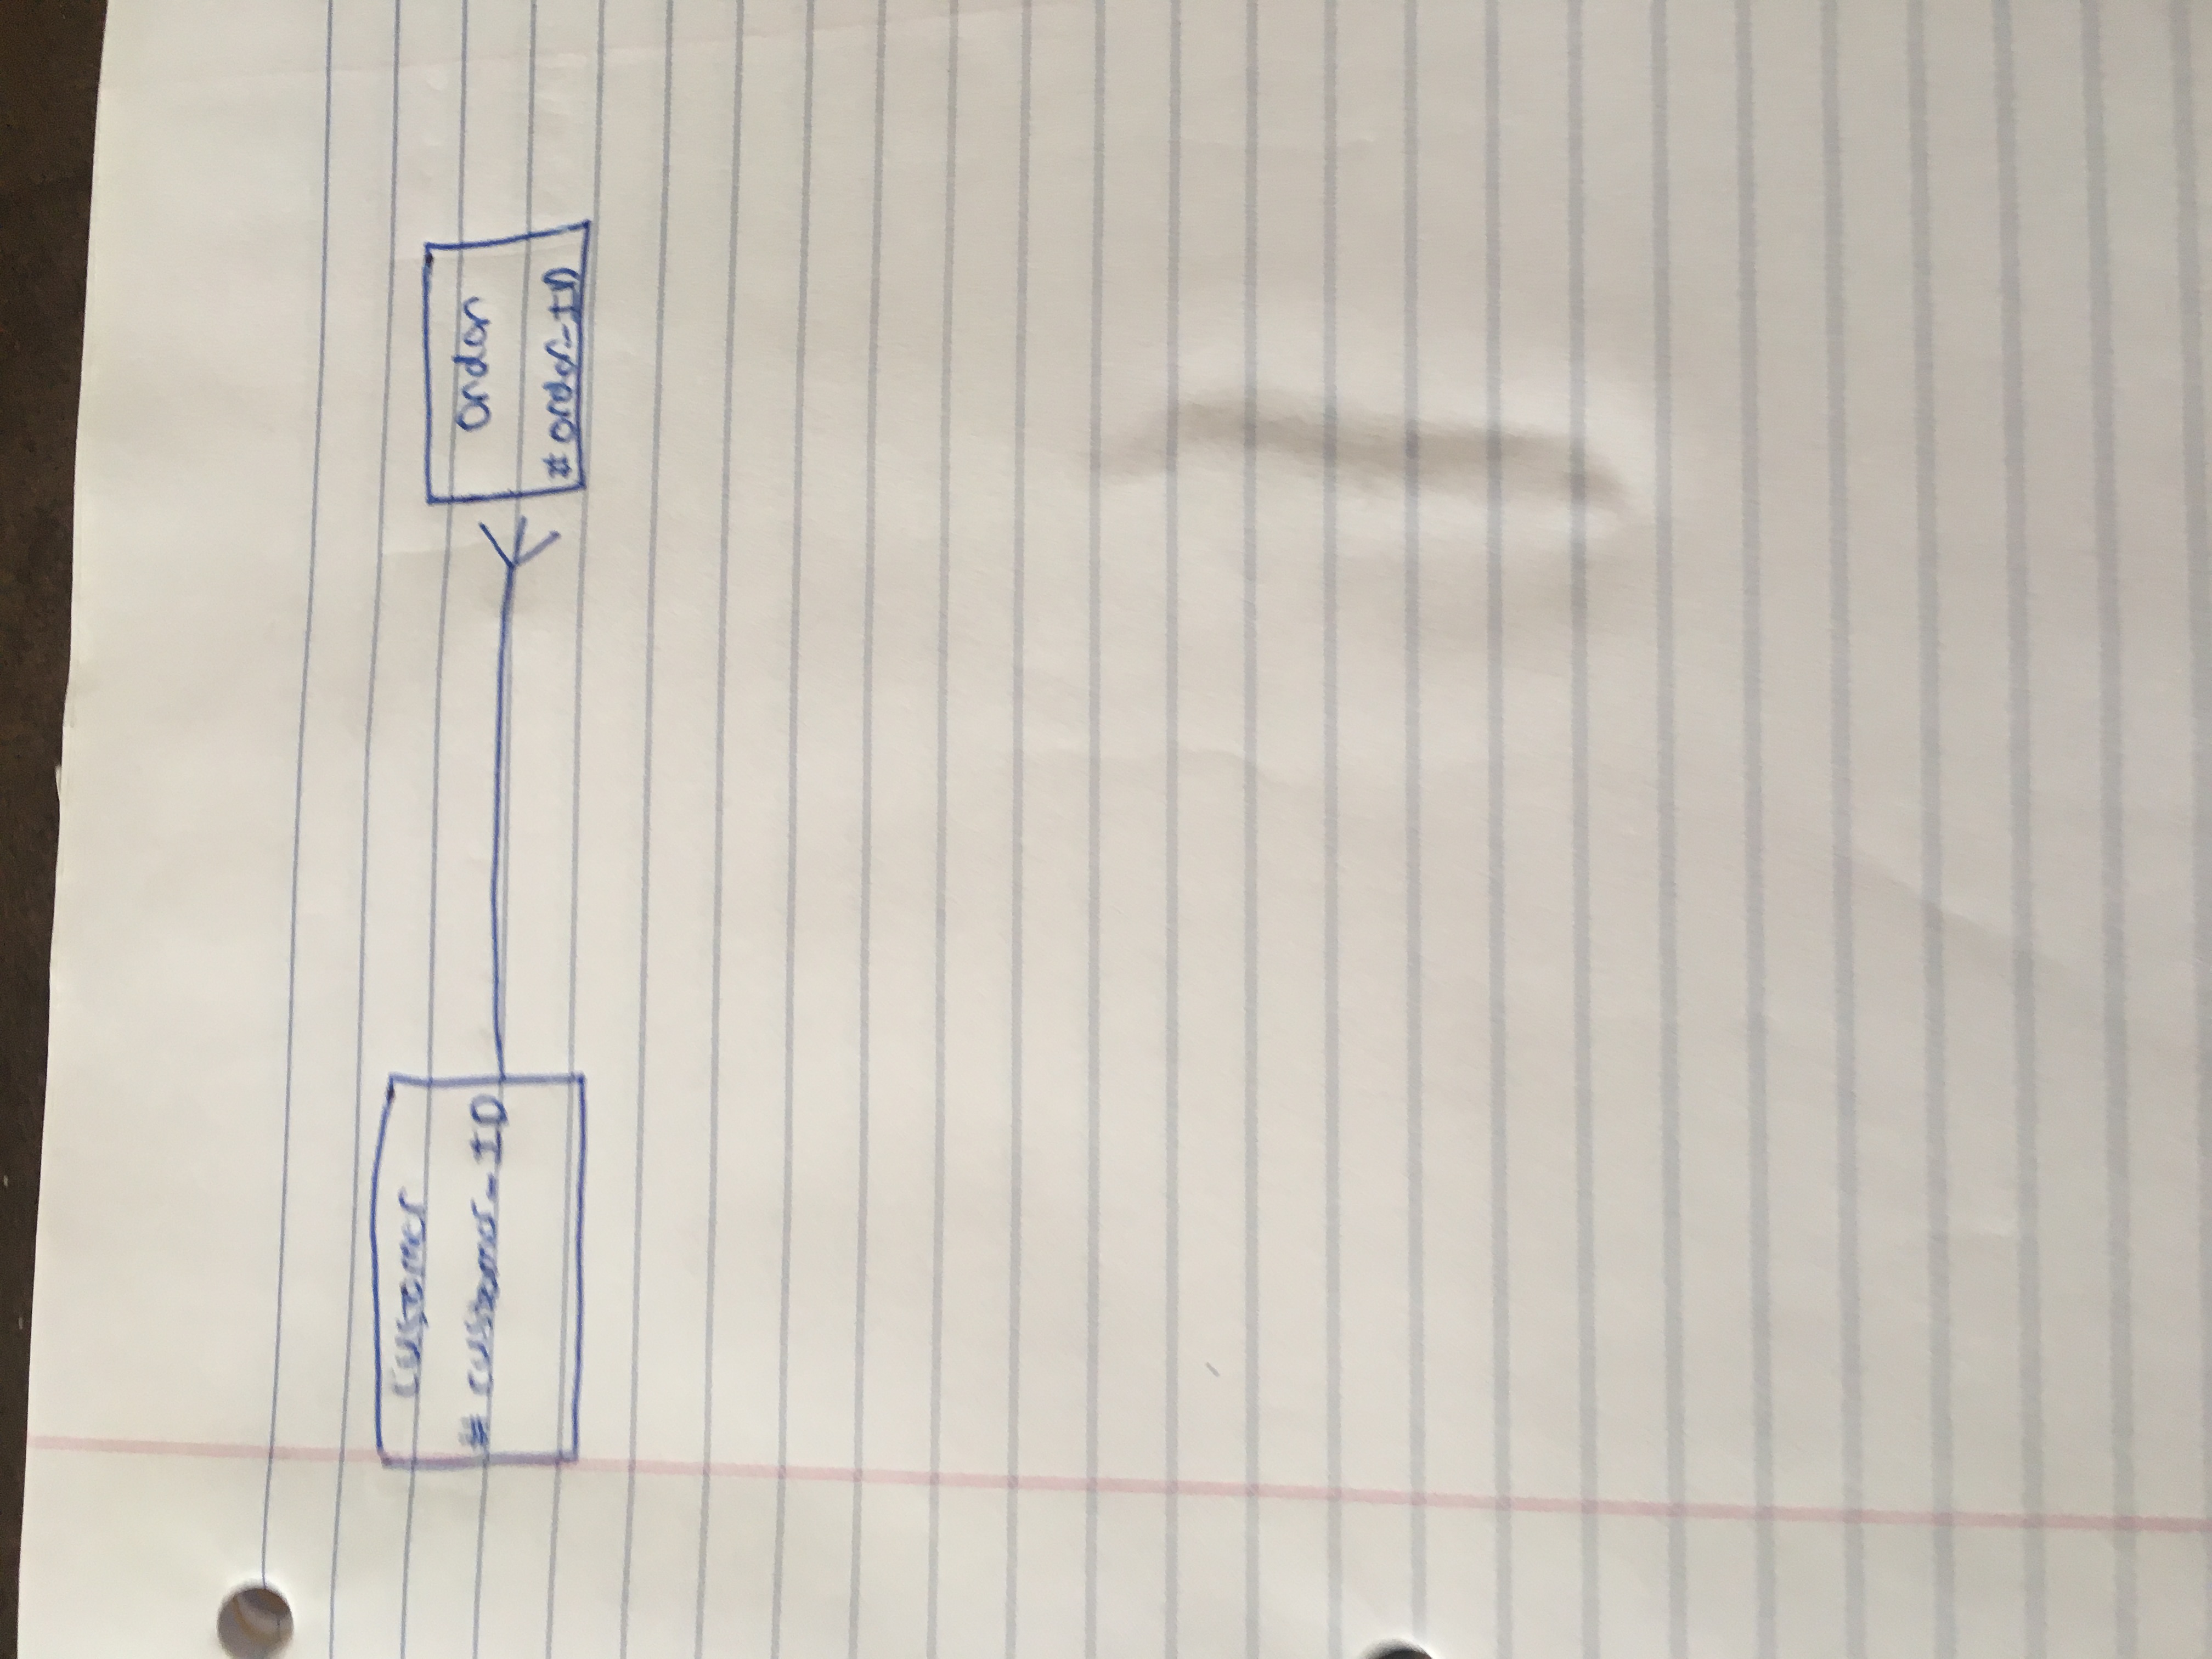 Customer
# customer_ID
Order
# order_ID